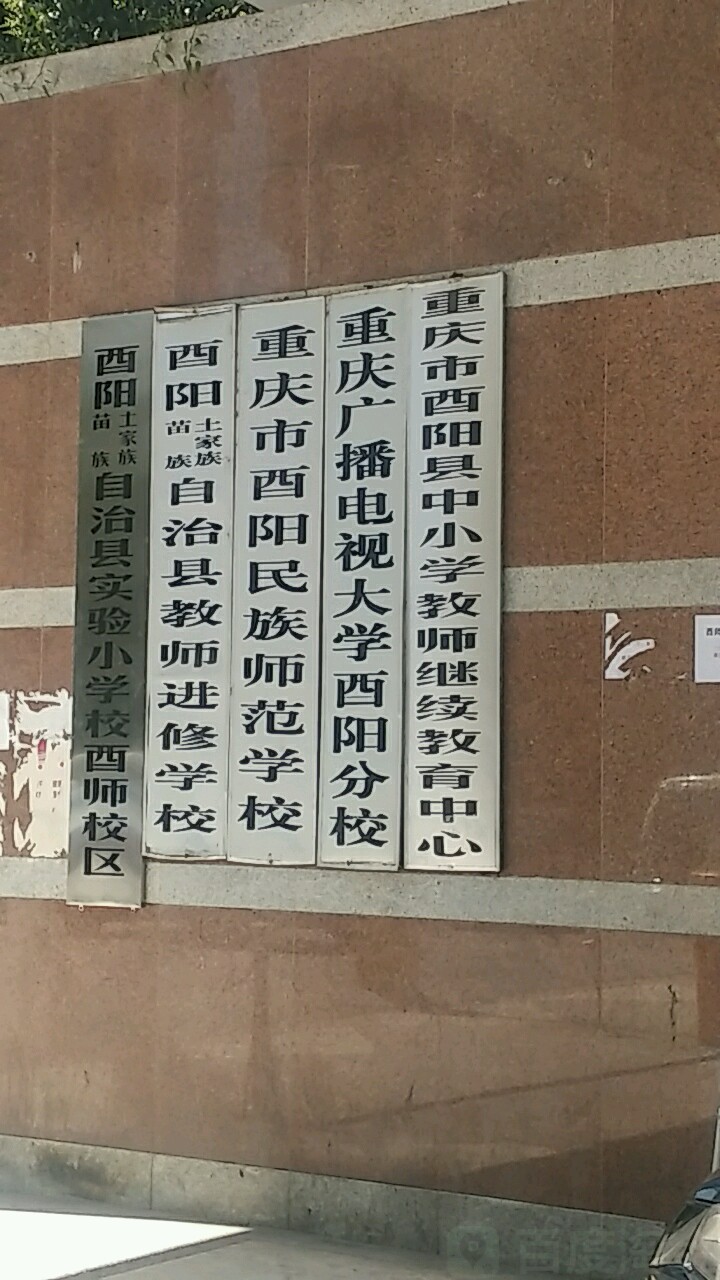 酉阳土家族苗族自治县实验小学校酉师校区
酉阳土家族苗族自治县教师进修学校
重庆市酉阳民族师范学校
重庆广播电视大学酉阳分校
重庆市酉阳县中小学教师继续教育中心